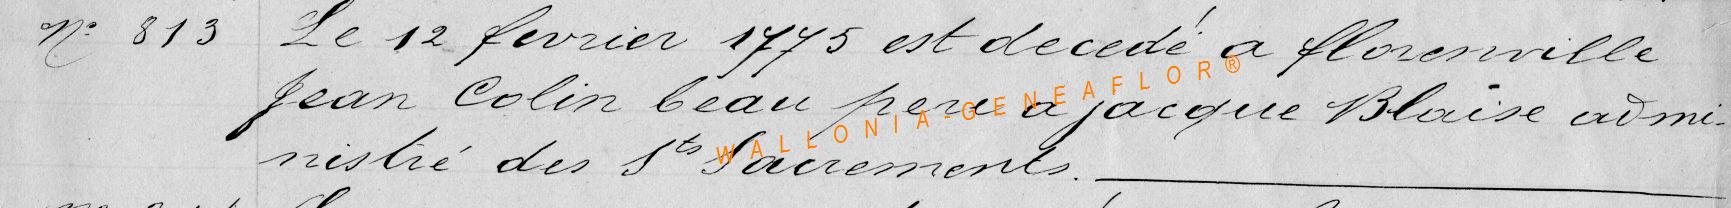 N° 813 Le 12 fevrier 1775 est decedé a florenville
Jean Colin beau pere a jacque Blaise admi-
nistré des Sts Sacrements.
WALLONIA-GENEAFLOR®